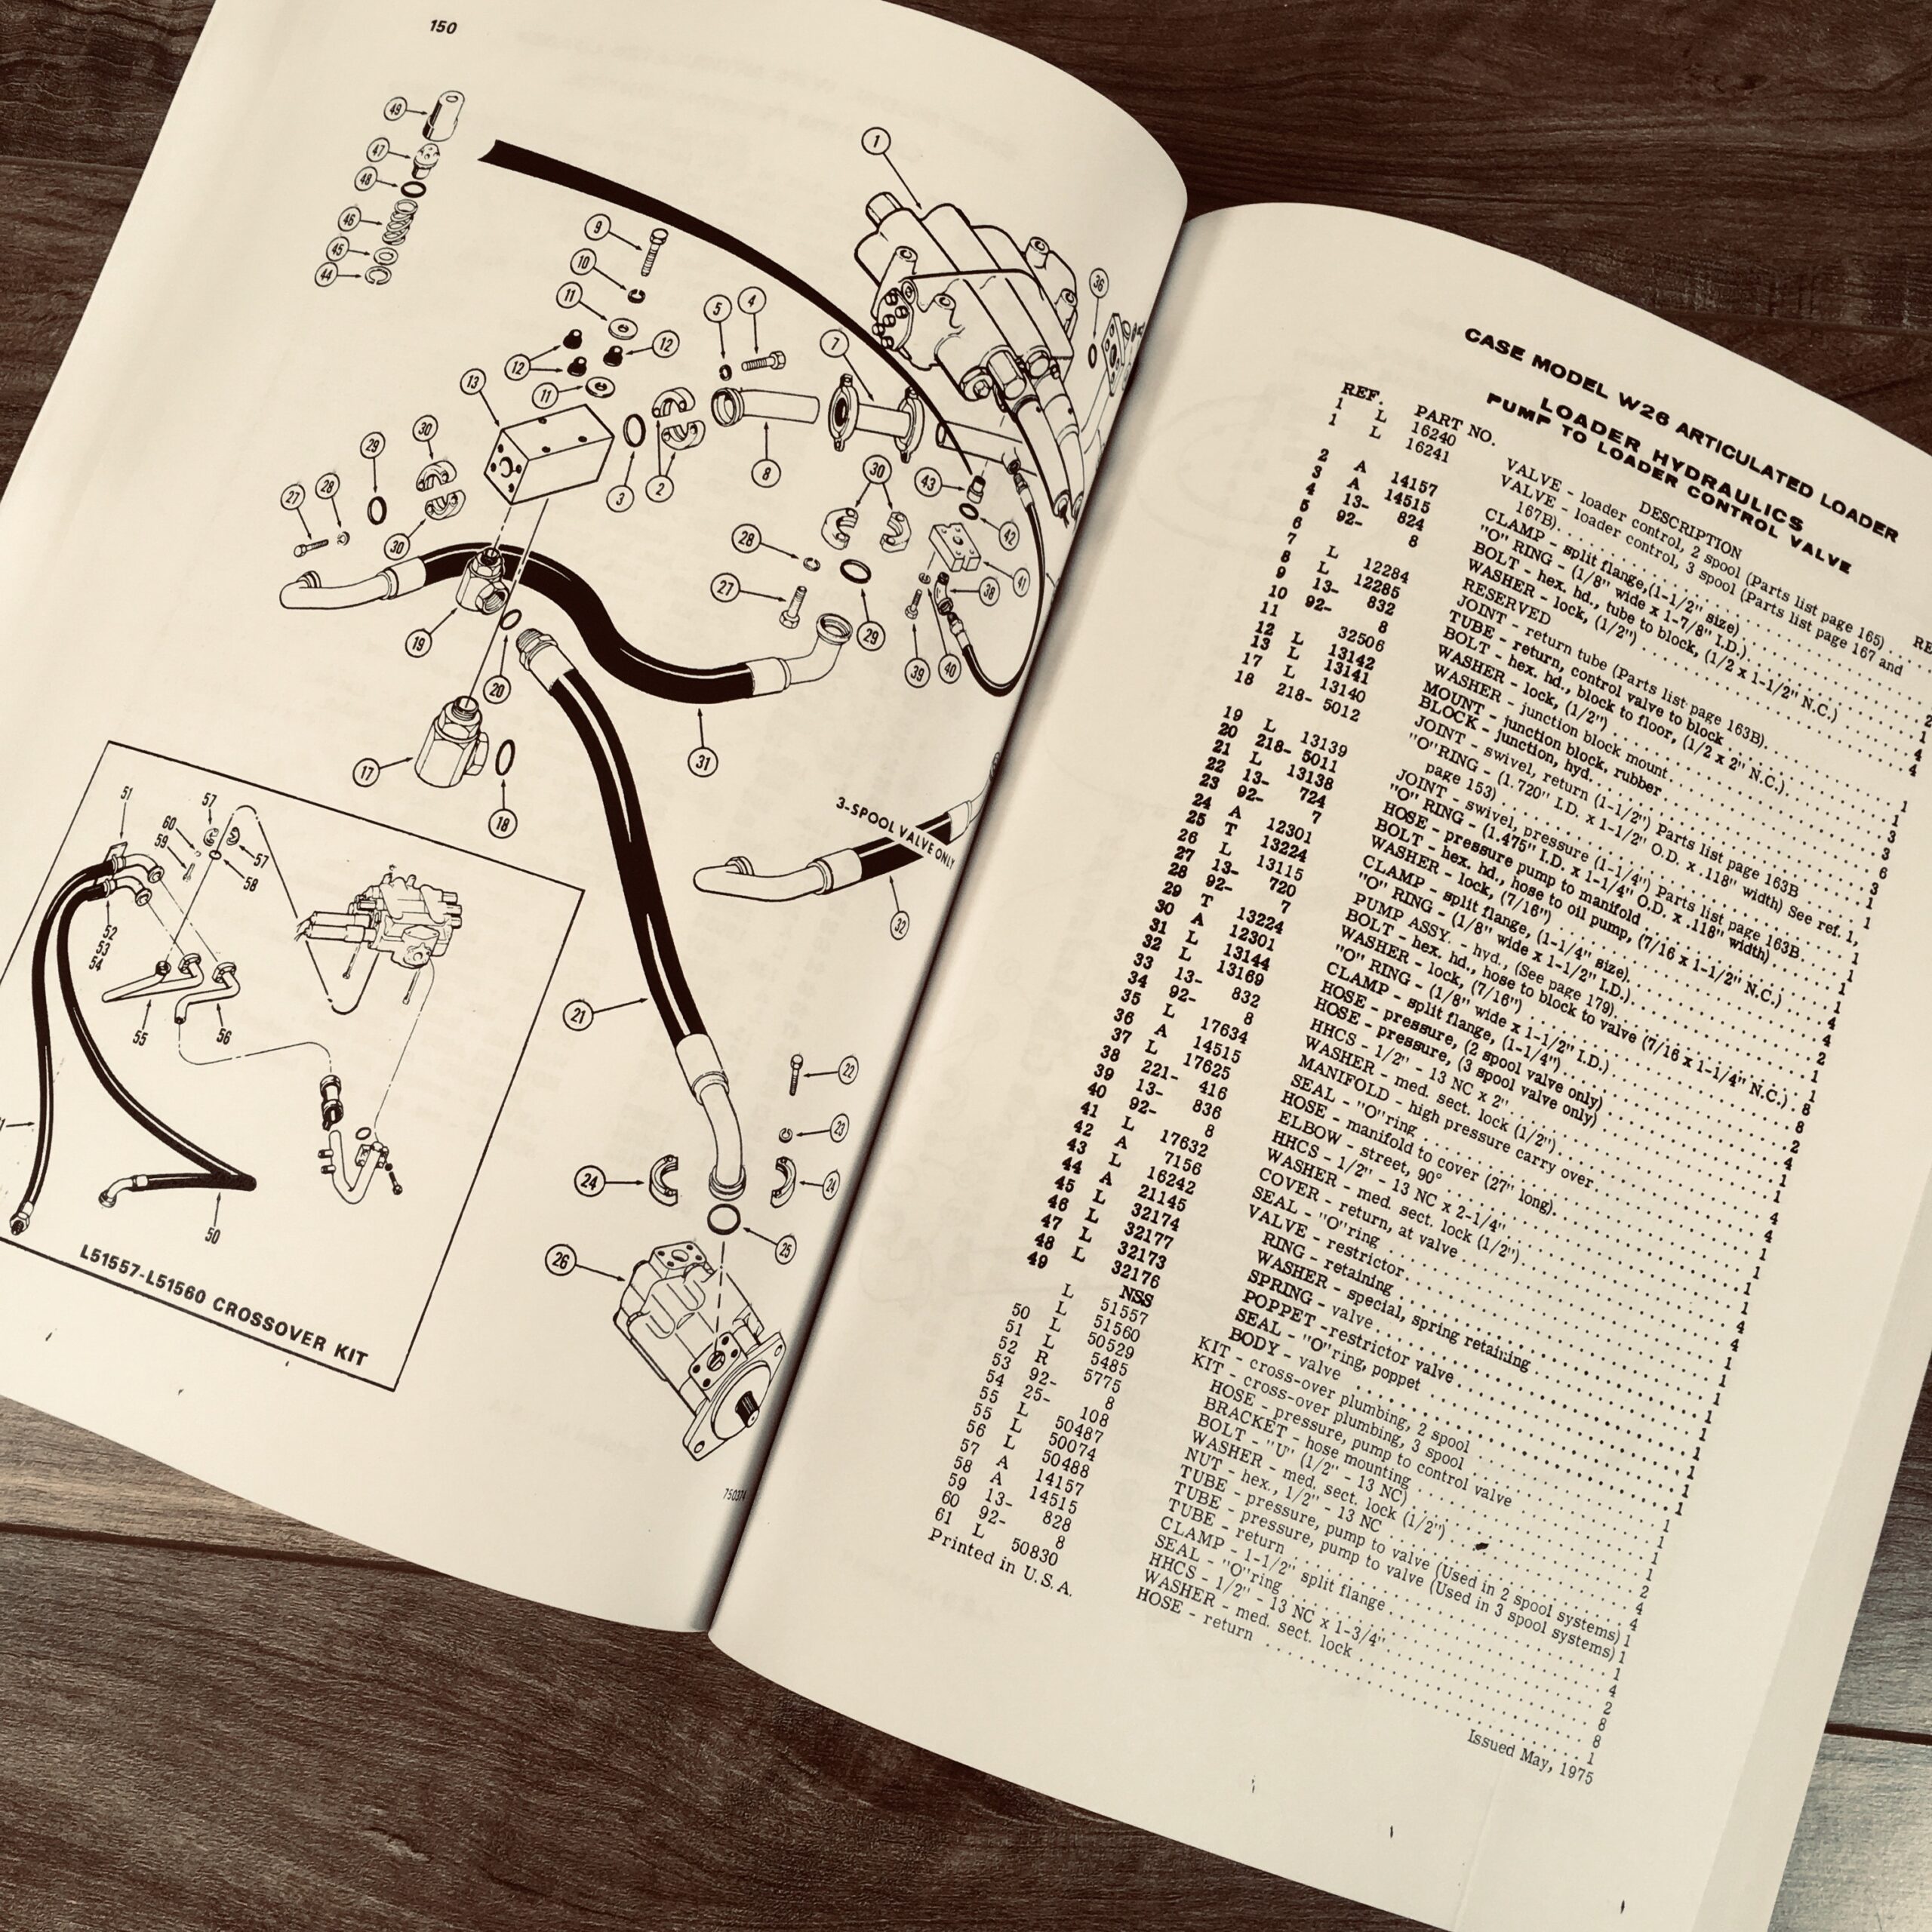 150
49
47
48
46
45
44
9
10
11
12
12
11
13
5
4
7
1
36
30
29
28
27
30
3
2
8
30
43
42
41
38
28
27
29
39
40
19
20
31
17
18
3-SPOOL VALVE ONLY
32
21
22
23
24
24
25
26
51
57
60
59
57
58
52
53
54
55
56
50
L51557-L51560 CROSSOVER KIT
750374
CASE MODEL W26 ARTICULATED LOADER
LOADER HYDRAULICS
PUMP TO LOADER CONTROL VALVE
REF. PART NO. DESCRIPTION
1 L 16240 VALVE - loader control, 2 spool (Parts list page 165)
1 L 16241 VALVE - loader control, 3 spool (Parts list page 167 and
167B)
2 A 14157 CLAMP - split flange,(1-1/2" size)
3 A 14515 "O" RING - (1/8" wide x 1-7/8" I.D.)
4 13- 824 BOLT - hex. hd., tube to block, (1/2 x 1-1/2" N.C.)
5 92- 8 WASHER - lock, (1/2")
6 RESERVED
7 L 12284 JOINT - return tube (Parts list page 163B)
8 L 12285 TUBE - return, control valve to block
9 13- 832 BOLT - hex. hd., block to floor, (1/2 x 2" N.C.)
10 92- 8 WASHER - lock, (1/2")
11 L 32506 WASHER - junction block mount
12 L 13142 MOUNT - junction block, rubber
13 L 13141 BLOCK - junction, hyd.
17 L 13140 JOINT - swivel, return (1-1/2") Parts list page 163B
18 218- 5012 "O"RING - (1.720" I.D. x 1-1/2" O.D. x .118" width) See ref. 1,
page 153)
19 L 13139 JOINT - swivel, pressure (1-1/4") Parts list page 163B
20 218- 5011 "O" RING - (1.475" I.D. x 1-1/4" O.D. x .118" width)
21 L 13138 HOSE - pressure pump to manifold
22 13- 724 BOLT - hex. hd., hose to oil pump, (7/16 x 1-1/2" N.C.)
23 92- 7 WASHER - lock, (7/16")
24 A 12301 CLAMP - split flange, (1-1/4" size)
25 T 13224 "O" RING - (1/8" wide x 1-1/2" I.D.)
26 L 13115 PUMP ASSY. - hyd., (See page 179)
27 13- 720 BOLT - hex. hd., hose to block to valve (7/16 x 1-1/4" N.C.) . 8
28 92- 7 WASHER - lock, (7/16") 8
29 T 13224 "O" RING - (1/8" wide x 1-1/2" I.D.) 2
30 A 12301 CLAMP - split flange, (1-1/4") 4
31 L 13144 HOSE - pressure, (2 spool valve only) 1
32 L 13169 HOSE - pressure, (3 spool valve only) 1
33 13- 832 HHCS - 1/2" - 13 NC x 2" 4
34 92- 8 WASHER - med. sect. lock (1/2") 4
35 L 17634 MANIFOLD - high pressure carry over 1
36 A 14515 SEAL - "O"ring 1
37 L 17625 HOSE - manifold to cover (27" long) 1
38 221- 416 ELBOW - street, 90° 1
39 13- 836 HHCS - 1/2" - 13 NC x 2-1/4" 4
40 92- 8 WASHER - med. sect. lock (1/2") 4
41 L 17632 COVER - return, at valve 1
42 A 7156 SEAL - "O"ring 1
43 L 16242 VALVE - restrictor 1
44 A 21145 RING - retaining 1
45 L 32174 WASHER - special, spring retaining 1
46 L 32177 SPRING - valve 1
47 L 32173 POPPET -restrictor valve 1
48 L 32176 SEAL - "O"ring, poppet 1
49 NSS BODY - valve 1
L 51557 KIT - cross-over plumbing, 2 spool
L 51560 KIT - cross-over plumbing, 3 spool
50 L 50529 HOSE - pressure, pump to control valve
51 R 5485 BRACKET - hose mounting
52 5775 BOLT - "U" (1/2" - 13 NC)
53 92- 8 WASHER - med. sect. lock (1/2")
54 25- 108 NUT - hex., 1/2" - 13 NC
55 L 50487 TUBE - pressure, pump to valve (Used in 2 spool systems) 1
55 L 50074 TUBE - pressure, pump to valve (Used in 3 spool systems) 1
56 L 50488 TUBE - return 1
57 A 14157 CLAMP - 1-1/2" split flange 4
58 A 14515 SEAL - "O"ring 2
59 13- 828 HHCS - 1/2" - 13 NC x 1-3/4" 8
60 92- 8 WASHER - med. sect. lock 8
61 L 50830 HOSE - return 1
Printed in U.S.A.
Issued May, 1975